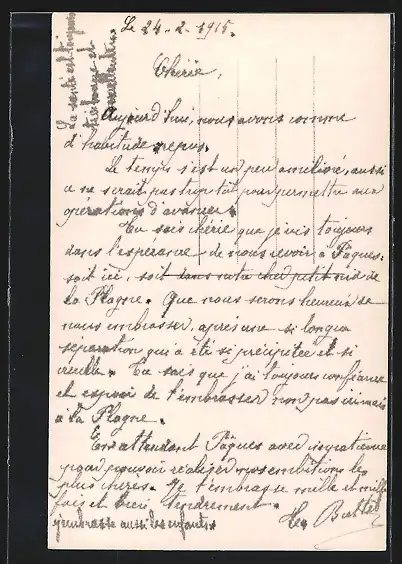 Le 24-2-1915.
La santé est toujours
très bonne et
excellente.
Chérie,
Aujourd'hui, nous avons comme
d'habitude repos.
Le temps s'est un peu amélioré, aussi
ce ne serait pas trop tôt pour permettre aux
opérations d'avancer.
Tu sais chérie que je vis toujours
dans l'espérance de nous revoir à Pâques,
soit ici, soit dans notre cher petit nid de
la Plagne. Que nous serons heureux de
nous embrasser, après une si longue
séparation qui a été si précipitée et si
cruelle. Tu sais que j'ai toujours confiance
et espoir de t'embrasser non pas ici mais
à la Plagne.
En attendant Pâques avec impatience
pour pouvoir réaliser nos ambitions les
plus chères. Je t'embrasse mille et mille
fois et bien tendrement.
j'embrasse aussi les enfants.